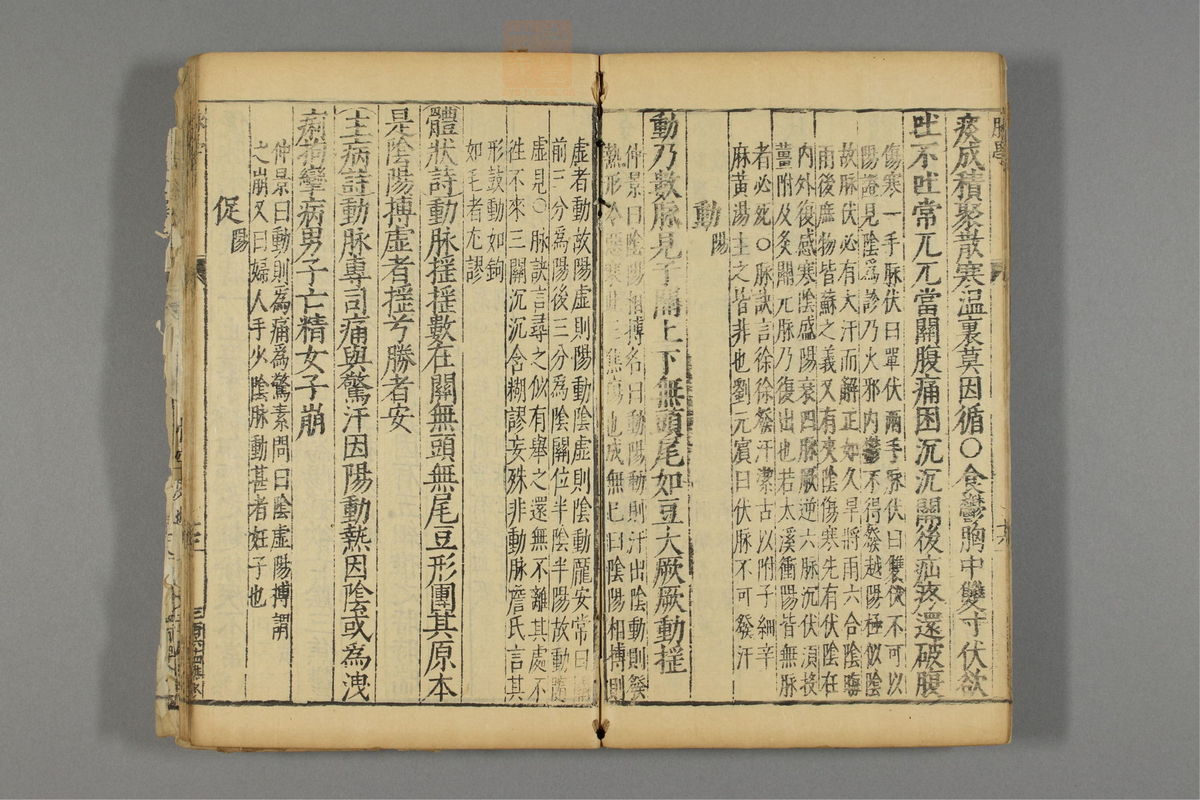 痰成積聚散寒溫裏莫因循○食鬱胸中雙寸伏欲
吐不吐常兀兀當關腹痛困沉沉關後疝疼還破腹
傷寒一手脉伏曰單伏兩手脉伏曰雙伏不可以
陽證見陰爲診乃火邪內鬱不得發越陽極似陰
故脉伏必有大汗而解正如久旱將雨六合陰晦
雨後庶物皆蘇之義又有夾陰傷寒先有伏陰在
內外復感寒陰盛陽衰四脉厥逆六脉沉伏須投
薑附及灸關元脉乃復出也若太溪衝陽皆無脉
者必死○脉訣言徐徐發汗潔古以附子細辛
麻黃湯主之皆非也劉元賓曰伏脉不可發汗
動陽
動乃數脉見于關上下無頭尾如豆大厥厥動搖
仲景曰陰陽相搏名曰動陽動則汗出陰動則發
熱形冷惡寒此三焦傷也成無己曰陰陽相搏則
虛者動故陽虛則陽動陰虛則陰動龎安常曰關
前三分爲陽後三分爲陰關位半陰半陽故動隨
虛見○脉訣言尋之似有舉之還無不離其處不
徃不來三關沉沉含糊謬妄殊非動脉詹氏言其
形鼓動如鉤
如毛者尤謬
體狀詩動脉搖搖數在關無頭無尾豆形團其原本
是陰陽搏虛者搖兮勝者安
主病詩動脉專司痛與驚汗因陽動熱因陰或為洩
痢拘攣病男子亡精女子崩
仲景曰動則爲痛爲驚素問曰陰虛陽搏謂
之崩又曰婦人手少陰脉動甚者妊子也
促陽